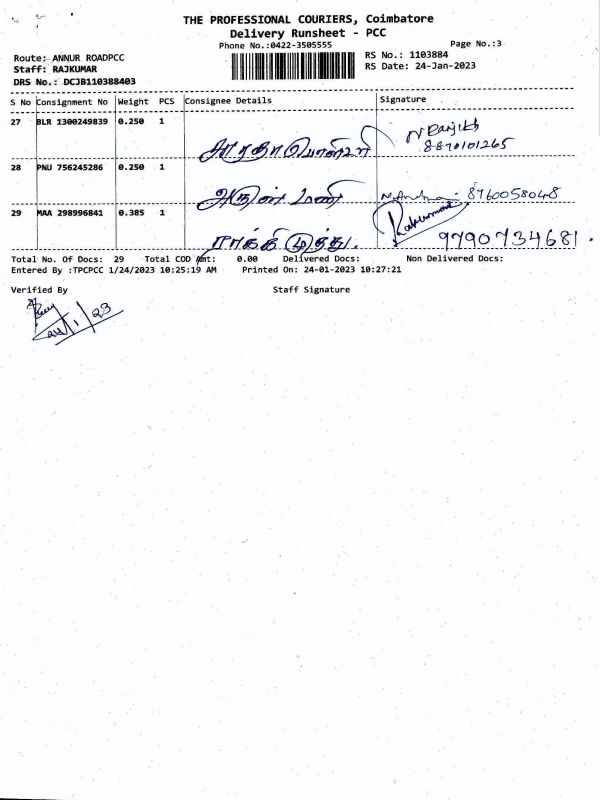 THE PROFESSIONAL COURIERS, Coimbatore
Delivery Runsheet - PCC
Phone No.:0422-3505555
Page No.:3
Route: ANNUR ROADPCC
RS No.: 1103884
Staff: RAJKUMAR
RS Date: 24-Jan-2023
DRS No.: DCJB110388403
S No Consignment No Weight PCS Consignee Details Signature
27 BLR 1300249839 0.250 1
N Ranjith
8870101265
28 PNU 756245286 0.250 1
அருண் மணி 8760058048
29 MAA 298996841 0.385 1
ராக்கி முத்து. 9790734681.
Total No. Of Docs: 29 Total COD Amt: 0.00 Delivered Docs: Non Delivered Docs:
Entered By :TPCPCC 1/24/2023 10:25:19 AM Printed On: 24-01-2023 10:27:21
Verified By Staff Signature
24/1/23